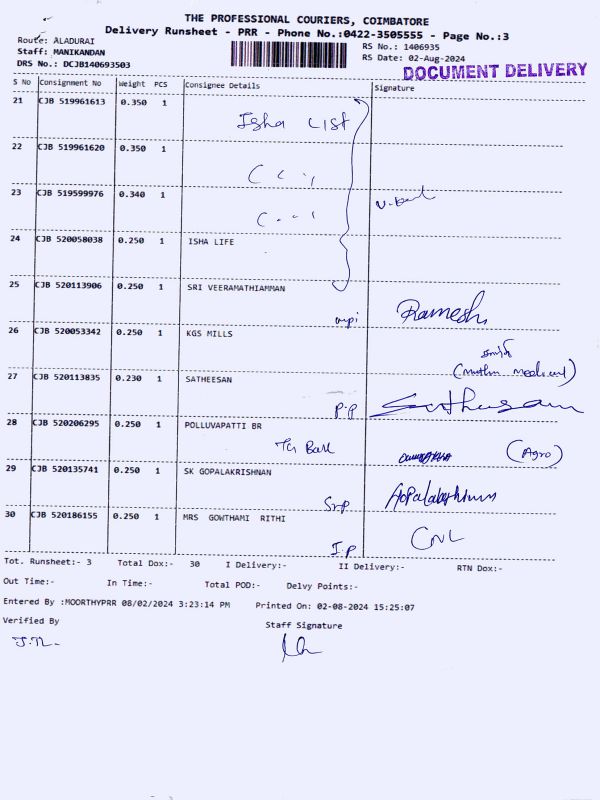 THE PROFESSIONAL COURIERS, COIMBATORE
Delivery Runsheet - PRR - Phone No.:0422-3505555 - Page No.:3
Route: ALADURAI
RS No.: 1406935
Staff: MANIKANDAN
RS Date: 02-Aug-2024
DRS No.: DCJB140693503
DOCUMENT DELIVERY
S No Consignment No Weight PCS Consignee Details Signature
21 CJB 519961613 0.350 1
Isha List
22 CJB 519961620 0.350 1
23 CJB 519599976 0.340 1
24 CJB 520058038 0.250 1 ISHA LIFE
25 CJB 520113906 0.250 1 SRI VEERAMATHIAMMAN
Ramesh
26 CJB 520053342 0.250 1 KGS MILLS
27 CJB 520113835 0.230 1 SATHEESAN
P.P
28 CJB 520206295 0.250 1 POLLUVAPATTI BR
(Agro)
29 CJB 520135741 0.250 1 SK GOPALAKRISHNAN
30 CJB 520186155 0.250 1 MRS GOWTHAMI RITHI
I.P
Tot. Runsheet:- 3 Total Dox:- 30 I Delivery:- II Delivery:- RTN Dox:-
Out Time:- In Time:- Total POD:- Delvy Points:-
Entered By :MOORTHYPRR 08/02/2024 3:23:14 PM Printed On: 02-08-2024 15:25:07
Verified By
Staff Signature